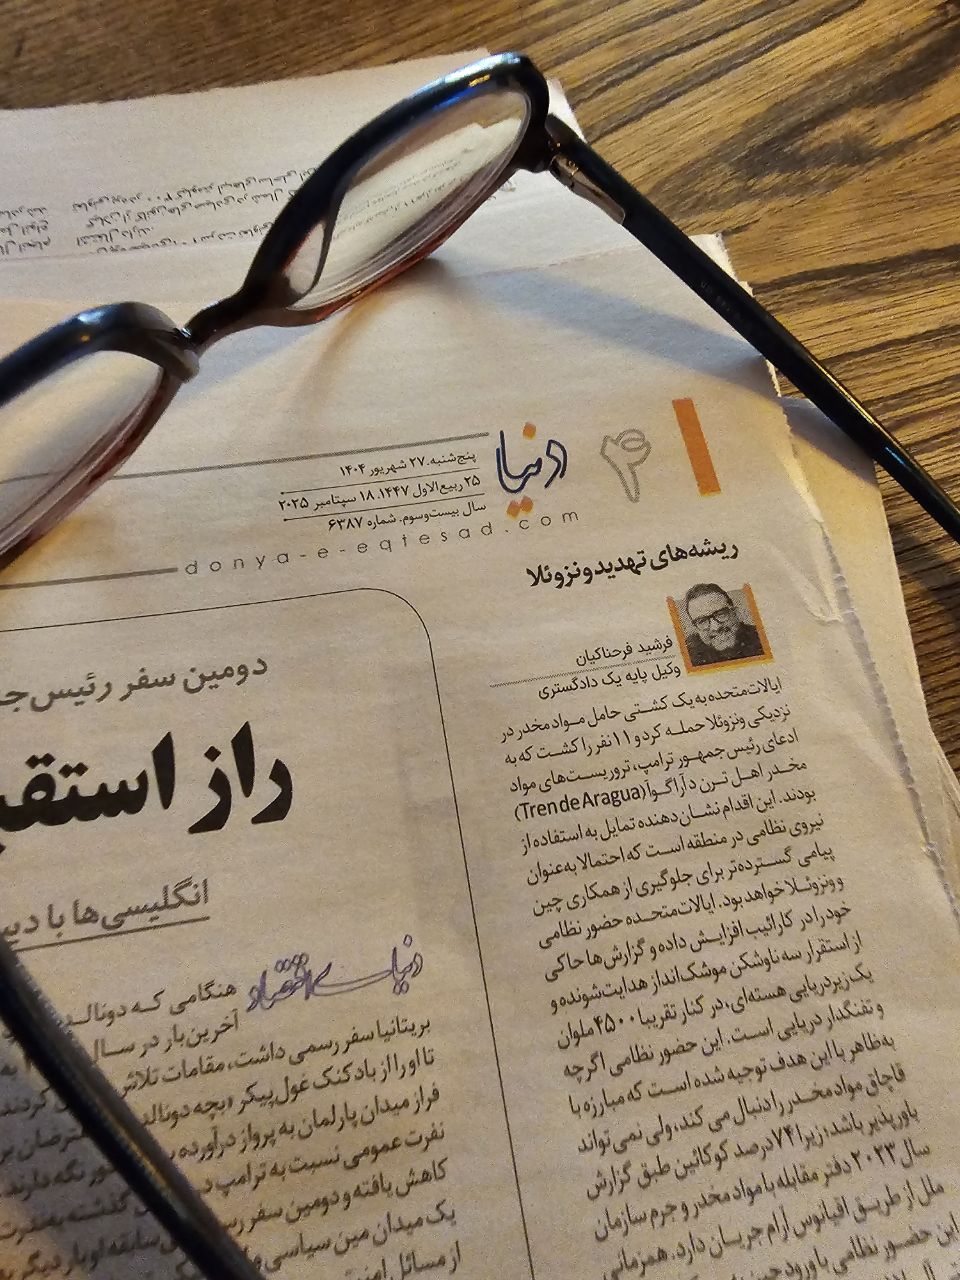 ۴
دنیا
پنج‌شنبه. ۲۷ شهریور ۱۴۰۴
۲۵ ربیع‌الاول ۱۴۴۷. ۱۸ سپتامبر ۲۰۲۵
سال بیست‌وسوم. شماره ۶۳۸۷
donya-e-eqtesad.com
ریشه‌های تهدید ونزوئلا
فرشید فرحناکیان
وکیل پایه یک دادگستری
ایالات‌متحده به یک کشتی حامل مواد مخدر در
نزدیکی ونزوئلا حمله کرد و ۱۱ نفر را کشت که به
ادعای رئیس‌جمهور ترامپ، تروریست‌های مواد
مخدر اهل ترن د آراگوآ (Tren de Aragua)
بودند. این اقدام نشان‌دهنده تمایل به استفاده از
نیروی نظامی در منطقه است که احتمالا به‌عنوان
پیامی گسترده‌تر برای جلوگیری از همکاری چین
و ونزوئلا خواهد بود. ایالات‌متحده حضور نظامی
خود را در کارائیب افزایش داده و گزارش‌ها حاکی
از استقرار سه ناوشکن موشک‌انداز هدایت‌شونده و
یک زیردریایی هسته‌ای، در کنار تقریبا ۴۵۰۰ ملوان
و تفنگدار دریایی است. این حضور نظامی اگرچه
به‌ظاهر با این هدف توجیه شده است که مبارزه با
قاچاق مواد مخدر را دنبال می‌کند، ولی نمی‌تواند
باورپذیر باشد؛ زیرا ۷۴ درصد کوکائین طبق گزارش
سال ۲۰۲۳ دفتر مقابله با مواد مخدر و جرم سازمان
ملل از طریق اقیانوس آرام جریان دارد. همزمانی
این حضور نظامی با ورود
دومین سفر رئیس‌جـ
راز استقبـ
انگلیسی‌ها با
دنیای اقتصاد
هنگامی که
آخرین‌بار در سال
بریتانیا سفر رسمی داشت، مقامات تلاش کردند
تا او را از بادکنک غول‌پیکر «بچه دونالد
فراز میدان پارلمان به پرواز درآورده
نفرت عمومی نسبت به ترامپ
کاهش یافته و دومین سفر
یک میدان مین سیاسی
از مسائل